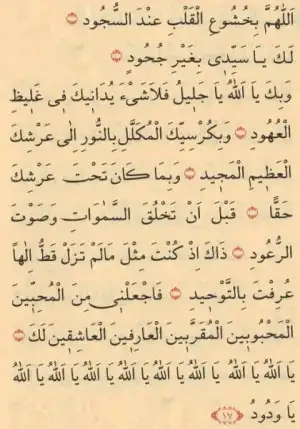 اَللّٰهُمَّ بِخُشُوعِ الْقَلْبِ عِنْدَ السُّجُودِ
لَكَ يَا سَيِّدِي بِغَيْرِ جُحُودٍ
وَبِكَ يَا اَللّٰهُ يَا جَلِيلُ فَلَاشَىْءَ يُدَانِيكَ فِى غَلِيظِ
الْعُهُودِ وَبِكُرْسِيِّكَ الْمُكَلَّلِ بِالنُّورِ اِلٰى عَرْشِكَ
الْعَظِيمِ الْمَجِيدِ وَبِمَا كَانَ تَحْتَ عَرْشِكَ
حَقًّا قَبْلَ اَنْ تَخْلُقَ السَّمٰوَاتِ وَصَوْتَ
الرُّعُودِ ذَاكَ اِذْ كُنْتَ مِثْلَ مَالَمْ تَزَلْ قَطُّ اِلٰهاً
عُرِفْتَ بِالتَّوْحِيدِ فَاجْعَلْنِى مِنَ الْمُحِبِّينَ
الْمَحْبُوبِينَ الْمُقَرَّبِينَ الْعَارِفِينَ الْعَاشِقِينَ لَكَ
يَا اَللّٰهُ يَا اَللّٰهُ يَا اَللّٰهُ يَا اَللّٰهُ يَا اَللّٰهُ يَا اَللّٰهُ يَا اَللّٰهُ
يَا وَدُودُ ١٧